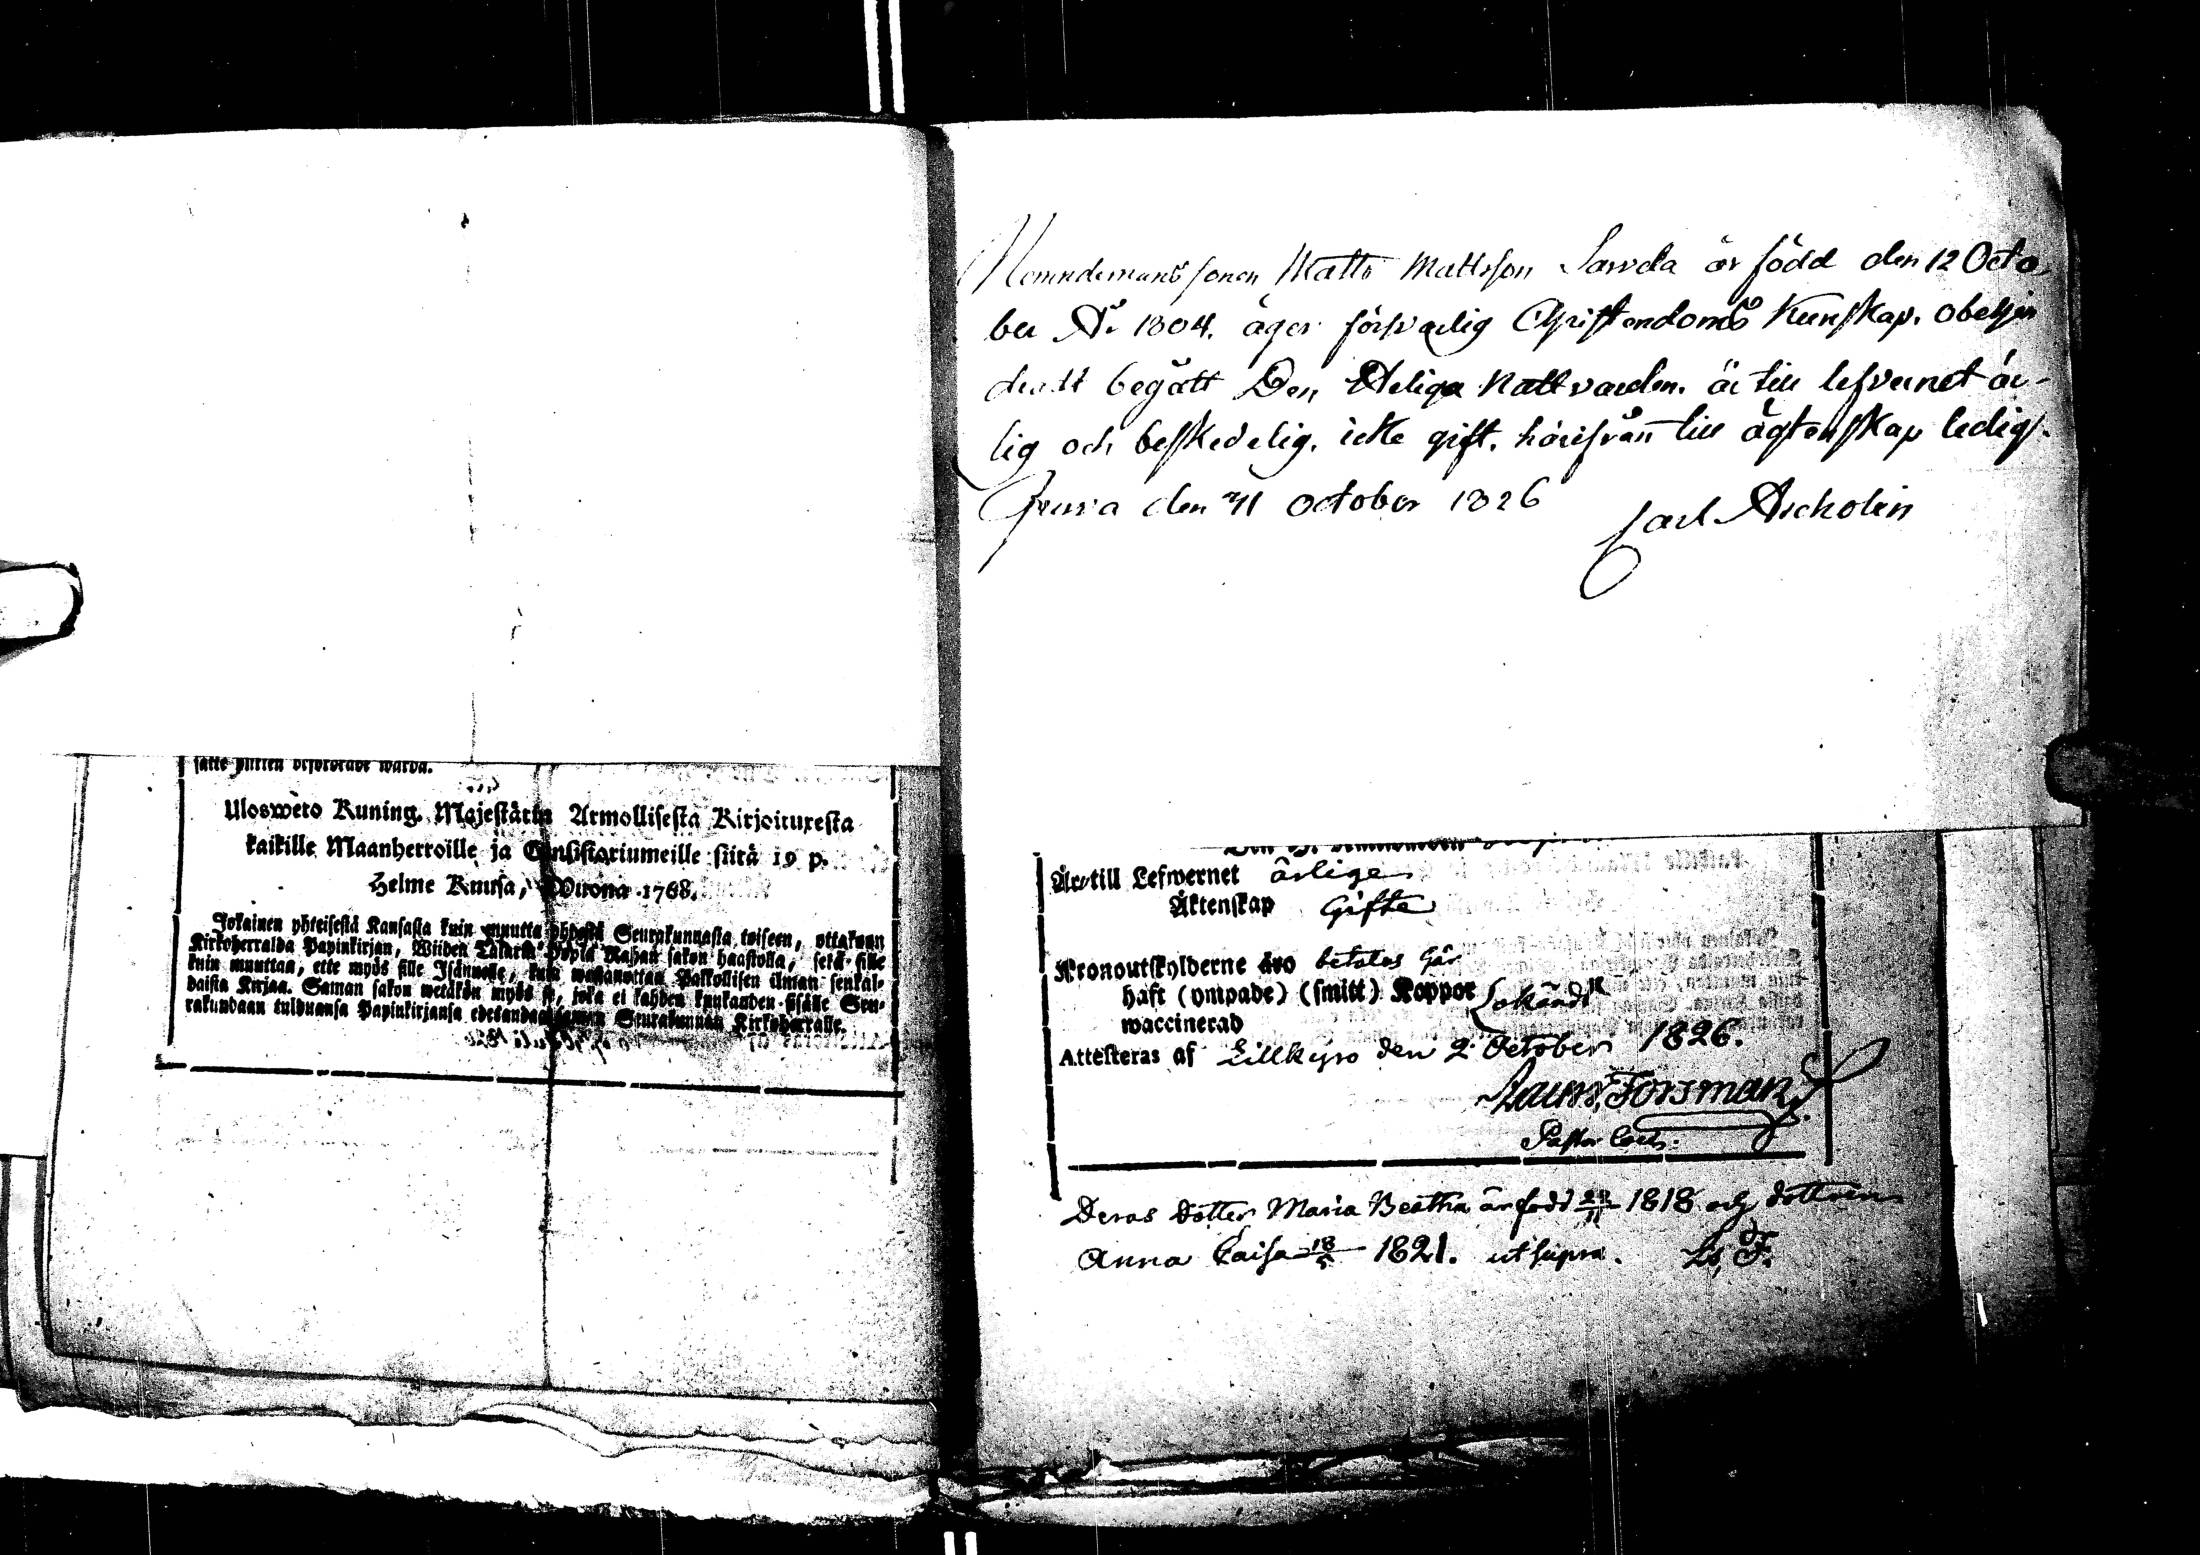 Uloswèto Kuning. Majestätin Armollisesta Kirjoituxesta
kaikille Maanherroille ja Consistoriumeille siitä 19 p.
Helme Kuusa, Wuona 1768.
Jokainen yhteisestä Kansasta kuin muutta yhdestä Seurakunnasta toiseen, ottakaan
Kirkoherralda Papinkirjan, Wiiden Talarin Hopia Rahan sakon haastolla, sekä sille
kuin muuttaa, ette myös sille Isännälle, kuin wastanottaa Palkollisen ilman senkal-
daista Kirjaa. Saman sakon wetäkön myös se, joka ei kahden kuukauden sisälle Seu-
rakundaan tulduansa Papinkirjansa edesanda Seurakunnan Kirkoherralle.
Nemndemans sonen Matts Mattsson är född den 12 Octo
ber År 1804. äger försvarlig Christendoms Kunskap. obehin
dradt begått Den Heliga Nattvarden. är till lefvernet är-
lig och beskedelig. icke gift. härifrån till ägtenskap ledig.
den 31 October 1826 Carl Ascholin
Är till Lefwernet ärlige
Äktenskap Gifte
Kronoutskylderne äro betalas här
haft (ympade) (smitt) Koppor
waccinerad
Attesteras af Lillkyro den 2 October 1826.
Forsman
Pastor
Deras Dotter Maria Beatha är född 1818 och dottren
Anna Caisa 18/5 1821. ut supra. Ls, F.